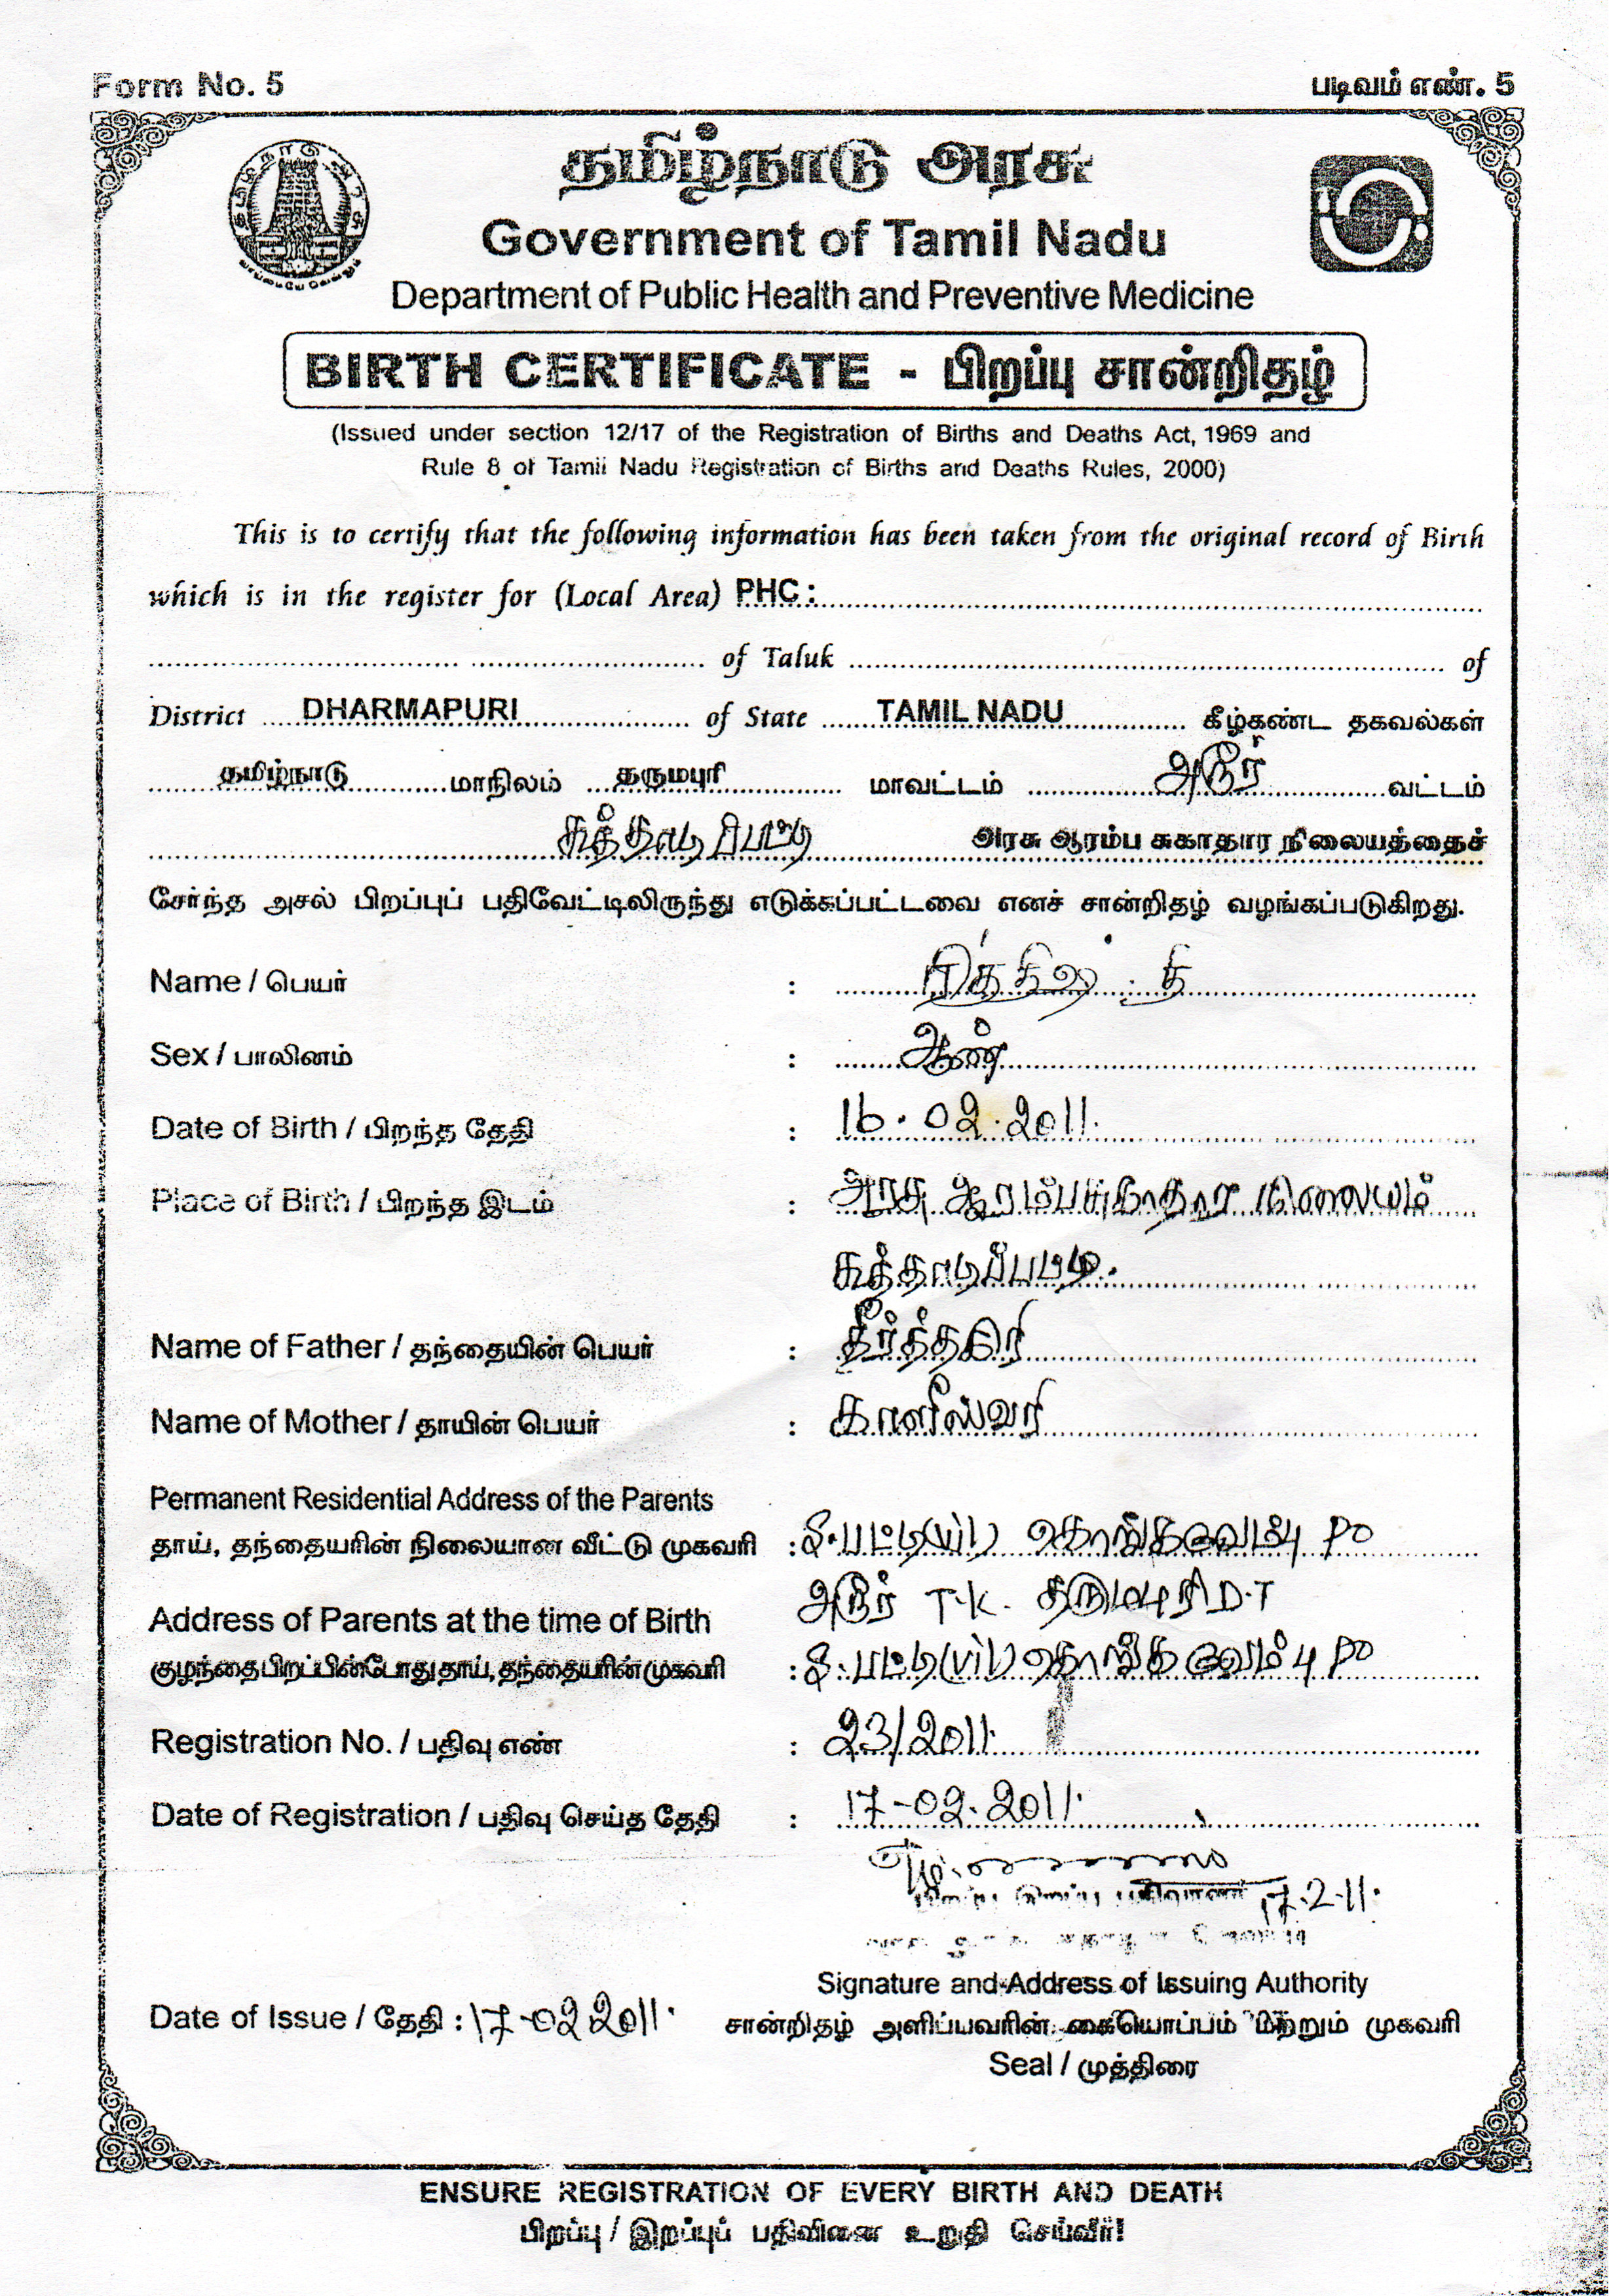 Form No. 5
படிவம் எண். 5
தமிழ்நாடு அரசு
Government of Tamil Nadu
Department of Public Health and Preventive Medicine
BIRTH CERTIFICATE - பிறப்பு சான்றிதழ்
(Issued under section 12/17 of the Registration of Births and Deaths Act, 1969 and
Rule 8 of Tamil Nadu Registration of Births and Deaths Rules, 2000)
This is to certify that the following information has been taken from the original record of Birth
which is in the register for (Local Area) PHC :
of Taluk of
District DHARMAPURI of State TAMIL NADU கீழ்கண்ட தகவல்கள்
தமிழ்நாடு மாநிலம் தருமபுரி மாவட்டம் அரூர் வட்டம்
அரசு ஆரம்ப சுகாதார நிலையத்தைச்
சேர்ந்த அசல் பிறப்புப் பதிவேட்டிலிருந்து எடுக்கப்பட்டவை எனச் சான்றிதழ் வழங்கப்படுகிறது.
Name / பெயர் :
Sex / பாலினம் : ஆண்
Date of Birth / பிறந்த தேதி : 16.02.2011.
Place of Birth / பிறந்த இடம் : அரசு ஆரம்பசுகாதார நிலையம்
Name of Father / தந்தையின் பெயர் : தீர்த்தகிரி
Name of Mother / தாயின் பெயர் : காளீஸ்வரி
Permanent Residential Address of the Parents
தாய், தந்தையரின் நிலையான வீட்டு முகவரி : PO
அரூர் T.K. தருமபுரி D.T
Address of Parents at the time of Birth
குழந்தை பிறப்பின்போது தாய், தந்தையரின் முகவரி : PO
Registration No. / பதிவு எண் : 23/2011.
Date of Registration / பதிவு செய்த தேதி : 17-02.2011.
17.2.11.
Signature and Address of Issuing Authority
Date of Issue / தேதி : 17-02.2011. சான்றிதழ் அளிப்பவரின் கையொப்பம் மற்றும் முகவரி
Seal / முத்திரை
ENSURE REGISTRATION OF EVERY BIRTH AND DEATH
பிறப்பு / இறப்புப் பதிவினை உறுதி செய்வீர்!